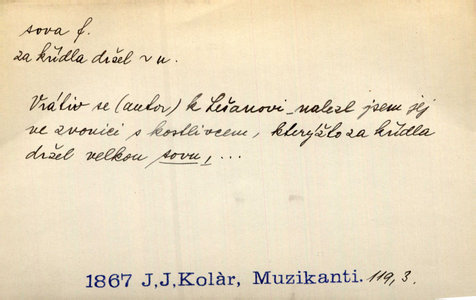 sova f.
za křídla držel v u.
Vrátiv se (autor) k Lešanovi nalezl jsem jej
ve zvonici s kostlivcem, kterýžto za křídla
držel velkou sovu, ...
1867 J,J,Kolàr, Muzikanti. 119,3.